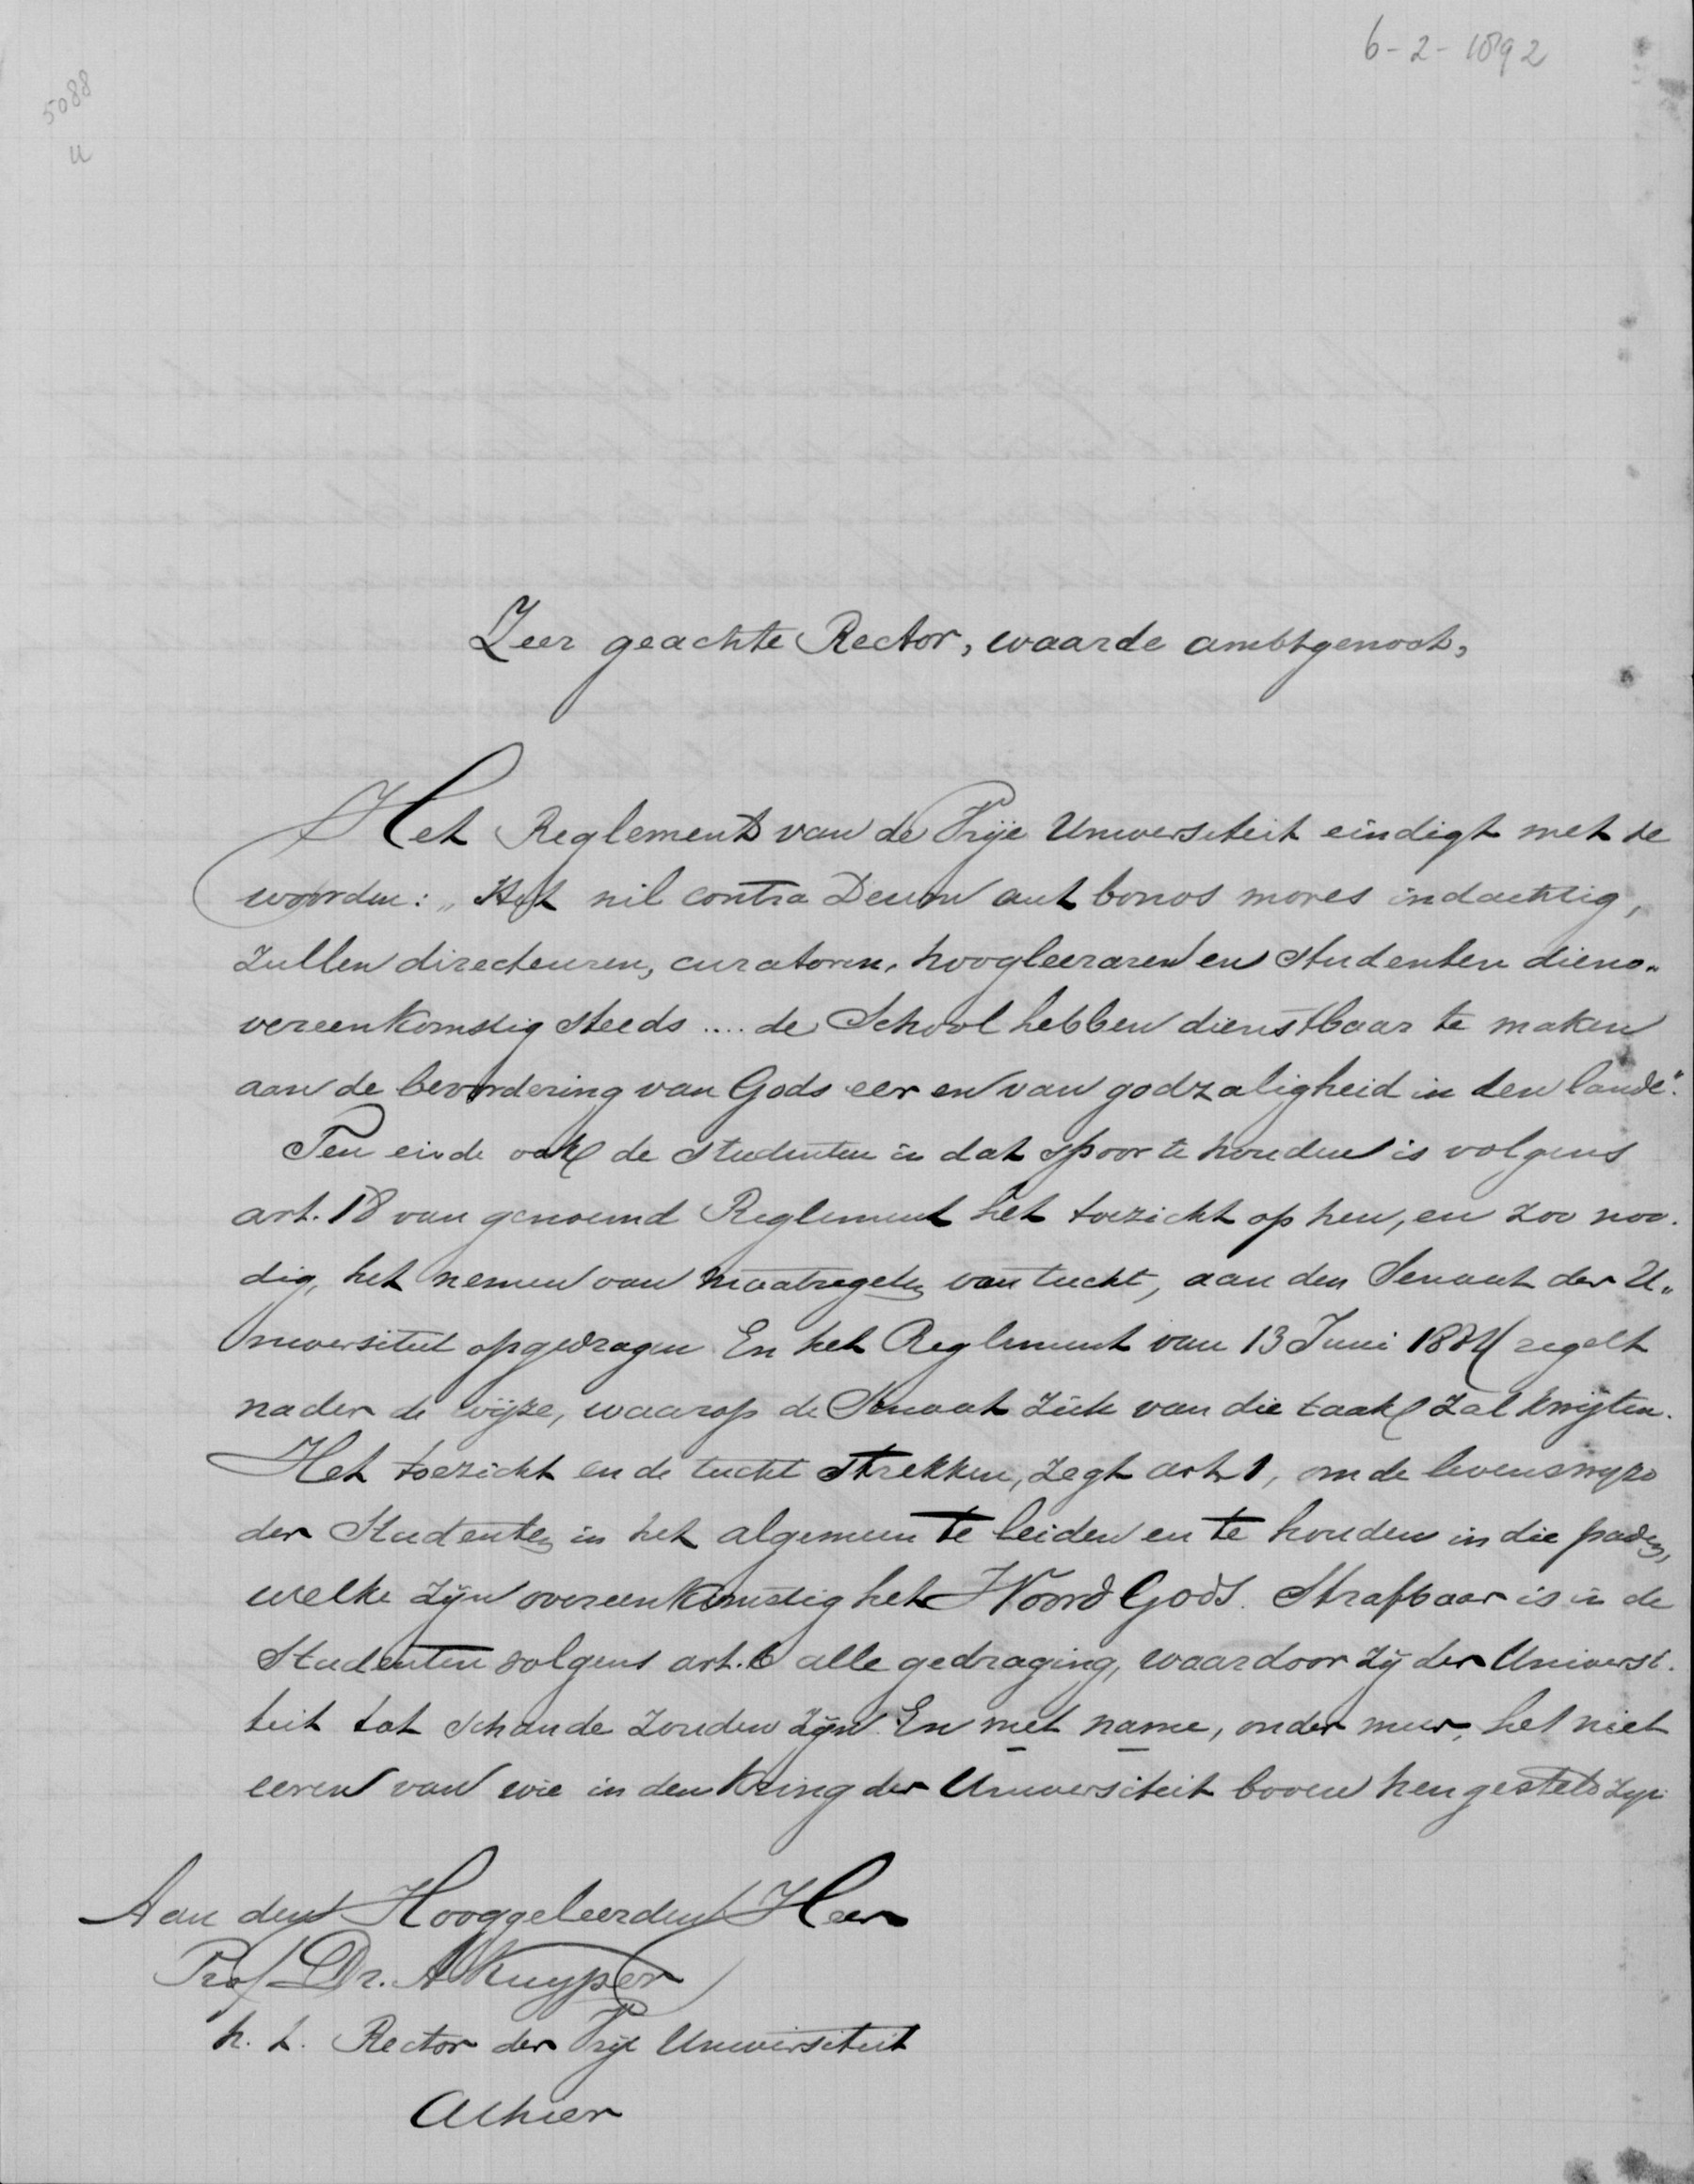 6-2-1892
5088
u
Zeer geachte Rector, waarde ambtgenoot,
Het Reglement van de Vrije Universiteit eindigt met de
woorden: „Het nil contra Deum aut bonos mores indachtig,
zullen directeuren, curatoren, hoogleeraren en studenten diens„
vereenkomstig steeds .... de School hebben dienstbaar te maken
aan de bevordering van Gods eer en van godzaligheid in den lande".
Ten einde ook de studenten in dat spoor te houden is volgens
art. 18 van genoemd Reglement het toezicht op hen, en zoo noo-
dig, het nemen van maatregelen van tucht, aan den Senaat der U„
niversiteit opgedragen. En het Reglement van 13 Juni 1884 regelt
nader de wijze, waarop de Senaat zich van die taak zal kwijten.
Het toezicht en de tucht strekken, zegt art. 1, om de levenswijze
der Studenten in het algemeen te leiden en te houden in die paden,
welke zijn overeenkomstig het Woord Gods. Strafbaar is in de
Studenten volgens art. 6 alle gedraging, waardoor zij der Universi-
teit tot schande zouden zijn. En met name, onder meer, het niet
eeren van wie in den kring der Universiteit boven hen gesteld zijn.
Aan den Hooggeleerden Heer
Prof. Dr. A Kuyper
h. t. Rector der Vrije Universiteit
Alhier